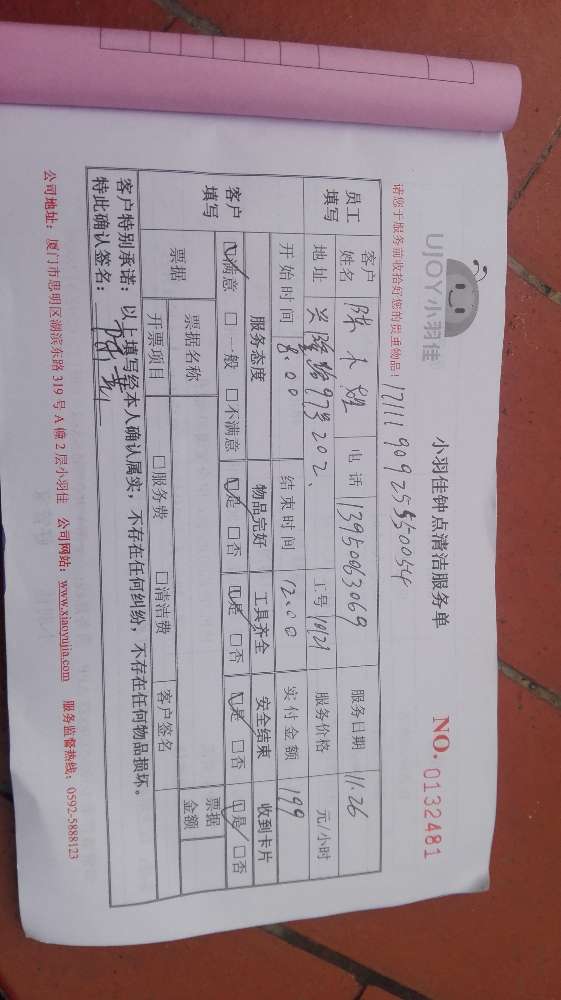 UJOY小羽佳
小羽佳钟点清洁服务单
NO. 0132481
请您于服务前收拾好您的贵重物品！
1711190925550054
员工填写 客户姓名 陈小姐 电话 13950063069 服务日期 11.26
地址 兴隆路97号202、 工号 1921 服务价格 元/小时
开始时间 8.00 结束时间 12.00 实付金额 199
客户填写 服务态度 物品完好 工具齐全 安全结束 收到卡片
☑满意 □一般 □不满意 ☑是 □否 ☑是 □否 ☑是 □否 ☑是 □否
票据 票据名称 □服务费 □清洁费 客户签名 票据金额
开票项目
客户特别承诺：以上填写经本人确认属实，不存在任何纠纷，不存在任何物品损坏。
特此确认签名：
公司地址：厦门市思明区湖滨东路319号A幢2层小羽佳 公司网站：www.xiaoyujia.com 服务监督热线：0592-5888123